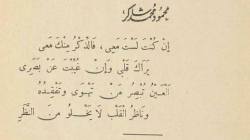 محمود محمد شاكر
إِنْ كُنْتَ لَسْتَ مَعِى، فَالذِّكْرُ مِنْكَ مَعِى
يَرَاكَ قَلْبِى وَإِنْ غُيِّبْتَ عَنْ بَصَرِى
الْعَيْنُ تُبْصِرُ مَنْ تَهْوَى وَتَفْقِدُهُ
وَنَاظِرُ الْقَلْبِ لَا يَخْلُو مِنَ النَّظَرِ